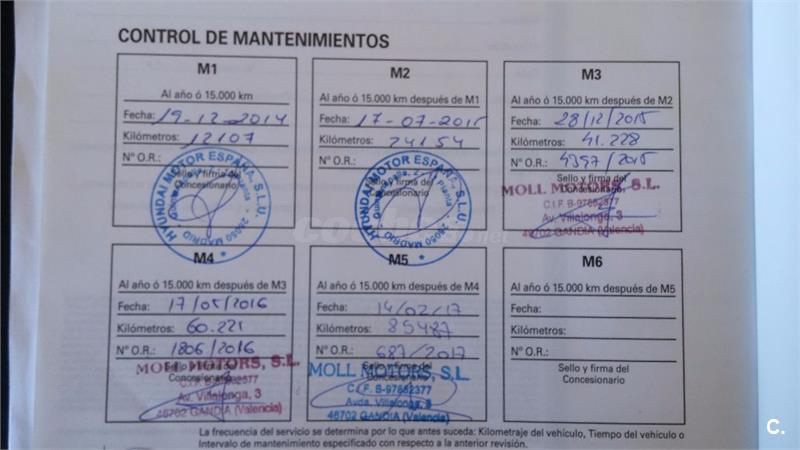 CONTROL DE MANTENIMIENTOS
M1
Al año ó 15.000 km
Fecha: 19-12-2014
Kilómetros: 12107
N° O.R.:
Sello y firma del
Concesionario
HYUNDAI MOTOR ESPAÑA, S.L.U.
28050 MADRID
M2
Al año ó 15.000 km después de M1
Fecha: 17-07-2015
Kilómetros: 24154
N° O.R.:
Sello y firma del
Concesionario
HYUNDAI MOTOR ESPAÑA, S.L.U.
28050 MADRID
M3
Al año ó 15.000 km después de M2
Fecha: 28/12/2015
Kilómetros: 41.228
N° O.R.: 4397/2015
Sello y firma del
Concesionario
MOLL MOTORS, S.L.
C.I.F. B-97682377
Av. Villalonga, 3
46702 GANDIA (Valencia)
M4
Al año ó 15.000 km después de M3
Fecha: 17/05/2016
Kilómetros: 60.221
N° O.R.: 1806/2016
Sello y firma del
Concesionario
MOLL MOTORS, S.L.
C.I.F. B-97682377
Av. Villalonga, 3
46702 GANDIA (Valencia)
M5
Al año ó 15.000 km después de M4
Fecha: 14/02/17
Kilómetros: 85487
N° O.R.: 687/2017
Sello y firma del
Concesionario
MOLL MOTORS, S.L.
C.I.F. B-97682377
Avda. Villalonga, 3
46702 GANDIA (Valencia)
M6
Al año ó 15.000 km después de M5
Fecha:
Kilómetros:
N° O.R.:
Sello y firma del
Concesionario
La frecuencia del servicio se determina por lo que antes suceda: Kilometraje del vehículo, Tiempo del vehículo o
Intervalo de mantenimiento especificado con respecto a la anterior revisión.
coches.net
C.